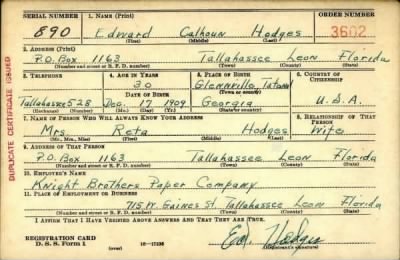 SERIAL NUMBER 1. NAME (Print) ORDER NUMBER
890 Edward Calhoun Hodges 3602
(First) (Middle) (Last)
2. ADDRESS (Print)
P.O. Box 1163 Tallahassee Leon Florida
(Number and street or R. F. D. number) (Town) (County) (State)
3. TELEPHONE 4. AGE IN YEARS 5. PLACE OF BIRTH 6. COUNTRY OF CITIZENSHIP
30 Glennville, Tatnall
DATE OF BIRTH (Town or county)
Tallahassee 528 Dec. 17 1909 Georgia U.S.A.
(Exchange) (No.) (Mo.) (Day) (Yr.) (State or country)
7. NAME OF PERSON WHO WILL ALWAYS KNOW YOUR ADDRESS 8. RELATIONSHIP OF THAT PERSON
Mrs. Reta Hodges Wife
(Mr., Mrs., Miss) (First) (Middle) (Last)
9. ADDRESS OF THAT PERSON
P.O. Box 1163 Tallahassee Leon Florida
(Number and street or R. F. D. number) (Town) (County) (State)
10. EMPLOYER'S NAME
Knight Brothers Paper Company
11. PLACE OF EMPLOYMENT OR BUSINESS
715 W. Gaines St. Tallahassee Leon Florida
(Number and street or R. F. D. number) (Town) (County) (State)
I AFFIRM THAT I HAVE VERIFIED ABOVE ANSWERS AND THAT THEY ARE TRUE.
REGISTRATION CARD
D. S. S. Form 1 (over) 16—17105 Ed. Hodges
(Registrant's signature)
DUPLICATE CERTIFICATE ISSUED